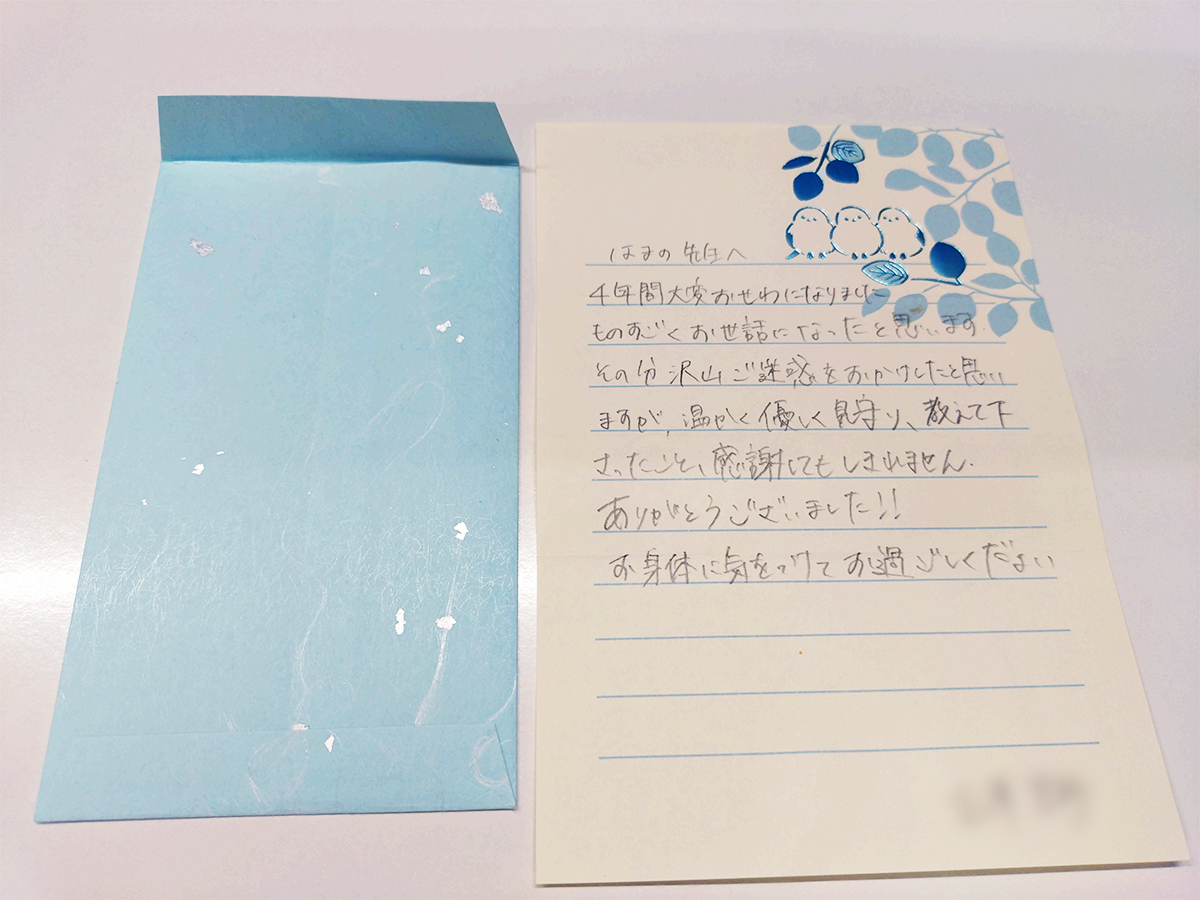 はまの先生へ
4年間大変おせわになりました
ものすごくお世話になったと思います.
その分沢山ご迷惑をおかけしたと思い
ますが、温かく優しく見守り、教えて下
さったこと、感謝してもしきれません.
ありがとうございました!!
お身体に気をつけてお過ごしください